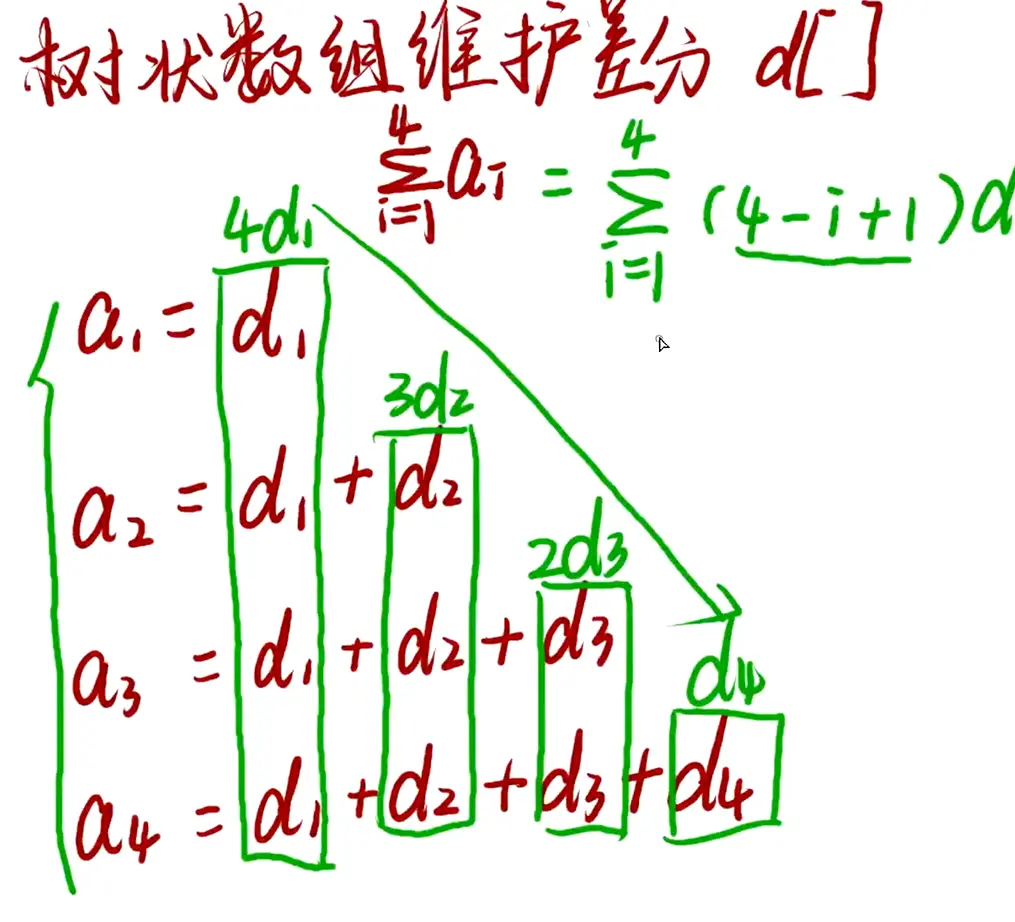 树状数组维护差分 d[ ]
4
∑ aᵢ = ∑ (4-i+1)d
i=1
4
i=1
4d₁
a₁ = d₁
3d₂
a₂ = d₁ + d₂
2d₃
a₃ = d₁ + d₂ + d₃
d₄
a₄ = d₁ + d₂ + d₃ + d₄